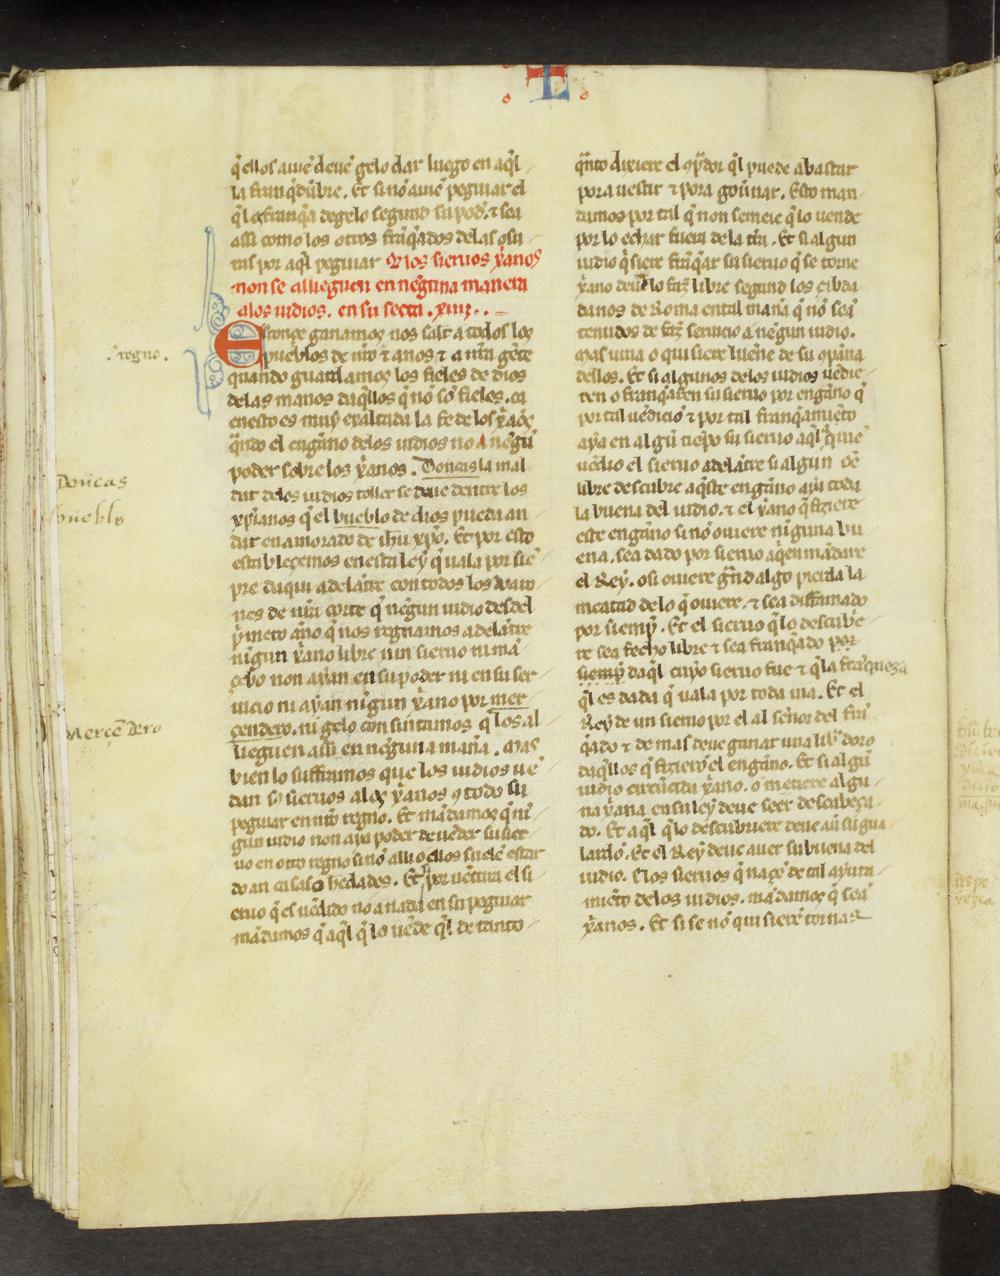 L
q̃ ellos auiẽ deuẽ gelo dar luego en aq̃l
la franq̃dũbre. Et si nõ auiẽ peguiar el
assi como los otros frãq̃ados delas osu
tas por aq̃l peguiar Q̃ los sieruos xp̃anos
non se alleguen en nẽguna manera
alos iudios. en su secta. xiiii.
Estonçe ganamos nos salt a todos los
pueblos de nr̃o ⁊ anos ⁊ a nr̃a gẽte
regno.
quando guardamos los fieles de dios
delas manos daq̃llos q̃ nõ sõ fieles. ca
enesto es muy exaltada la fe de los xp̃aos
q̃ndo el engãno delos iudios no a nẽgũ
poder sobre los xp̃anos. Doncas la mal
Doncas
dat delos iudios toller se deue dentre los
xp̃ianos q̃ el pueblo de dios pueda an
pueblo
dar enamorado de ihũ xp̃o. Et por esto
estableçemos en esta ley q̃ uala por siẽ
pre daqui adelãtre con todos los uaro
nes de nr̃a corte q̃ nẽgun iudio desdel
p̃mero año q̃ nos regnamos adelãtre
nĩgun xp̃ano libre nin sieruo ni mã
çebo non ayan en su poder ni en su ser
uicio ni ayan nĩgun xp̃ano por mer
çendero. ni gelo consintamos q̃ los al
Merçẽdero
lleguen assi en nẽguna mañã. mas
bien lo suffrimos que los iudios uẽ
dan sos sieruos alos xp̃anos cõ todo su
peguiar en nr̃o regno. Et mãdamos q̃ nĩ
gun iudio non aya poder de uẽder su sier
uo en otro regno sinõ alli o ellos suelẽ estar
do an casas o hedades. Et si por uẽtura el si
eruo q̃ es uẽdido no a nada en su peguiar
mãdamos q̃ aq̃l q̃ lo uẽde q̃l de tanto
q̃nto dixiere el cõp̃dor q̃l puede abastar
pora uestir ⁊ pora gou̾nar. Esto man
damos por tal q̃ non semeie q̃ lo uende
por lo echar fuera de la tr̃a. Et si algun
iudio q̃siere frãq̃ar su sieruo q̃ se torne
xp̃ano deuelo frz̃ libre segund los çibda
danos de Roma en tal mañã q̃ nõ seã
tenudos de frz̃ seruicio a nẽgun iudio.
mas uiua o quisiere lueñe de su cõp̃ãna
dellos. Et si algunos delos iudios uẽdie
ren o franq̃aren su sieruo por engãno q̃
por tal uẽdiciõ ⁊ por tal franq̃amiẽto
aya en algũ tiẽpo su sieruo aq̃l que
uẽdio el sieruo adelãtre si algun oẽ
libre descubre aq̃ste engãno aya toda
la buena del iudio. ⁊ el xp̃ano q̃ fiziere
este engãno si nõ ouiere nĩguna bu
ena. sea dado por sieruo aq̃en mãdare
el Rey. o si ouiere grãd algo pierda la
meatad de lo q̃ ouiere. ⁊ sea diffamado
por siemp̃. Et el sieruo q̃ lo descubie
re sea fecho libre ⁊ sea franq̃ado por
siemp̃ daq̃l cuyo sieruo fue ⁊ q̃ la franqueza
q̃l es dada q̃ uala por toda uia. Et el
Rey de un sieruo por el al señor del frã
q̃ado ⁊ de mas deue ganar una lib̃ doro
daq̃llos q̃ fizierõ el engãno. Et si algũ
iudio circũcida xp̃ano. o metiere algu
na xp̃ana en su ley deue seer descabeça
do. Et aq̃l q̃ lo descubriere deue au̾ su gua
lardõ. Et el Rey deue auer su buena del
iudio. Los sieruos q̃ naçẽ de tal ayunta
miẽto delos iudios. mãdamos q̃ seã
xp̃anos. Et si se nõ quisierẽ tornar